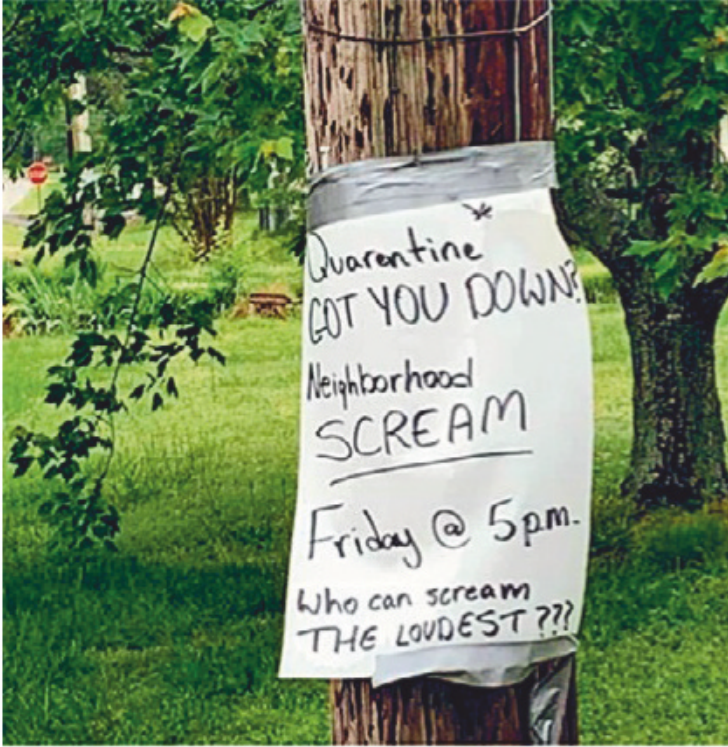 Quarentine*
GOT YOU DOWN?
Neighborhood
SCREAM
Friday @ 5p.m.
Who can scream
THE LOUDEST???